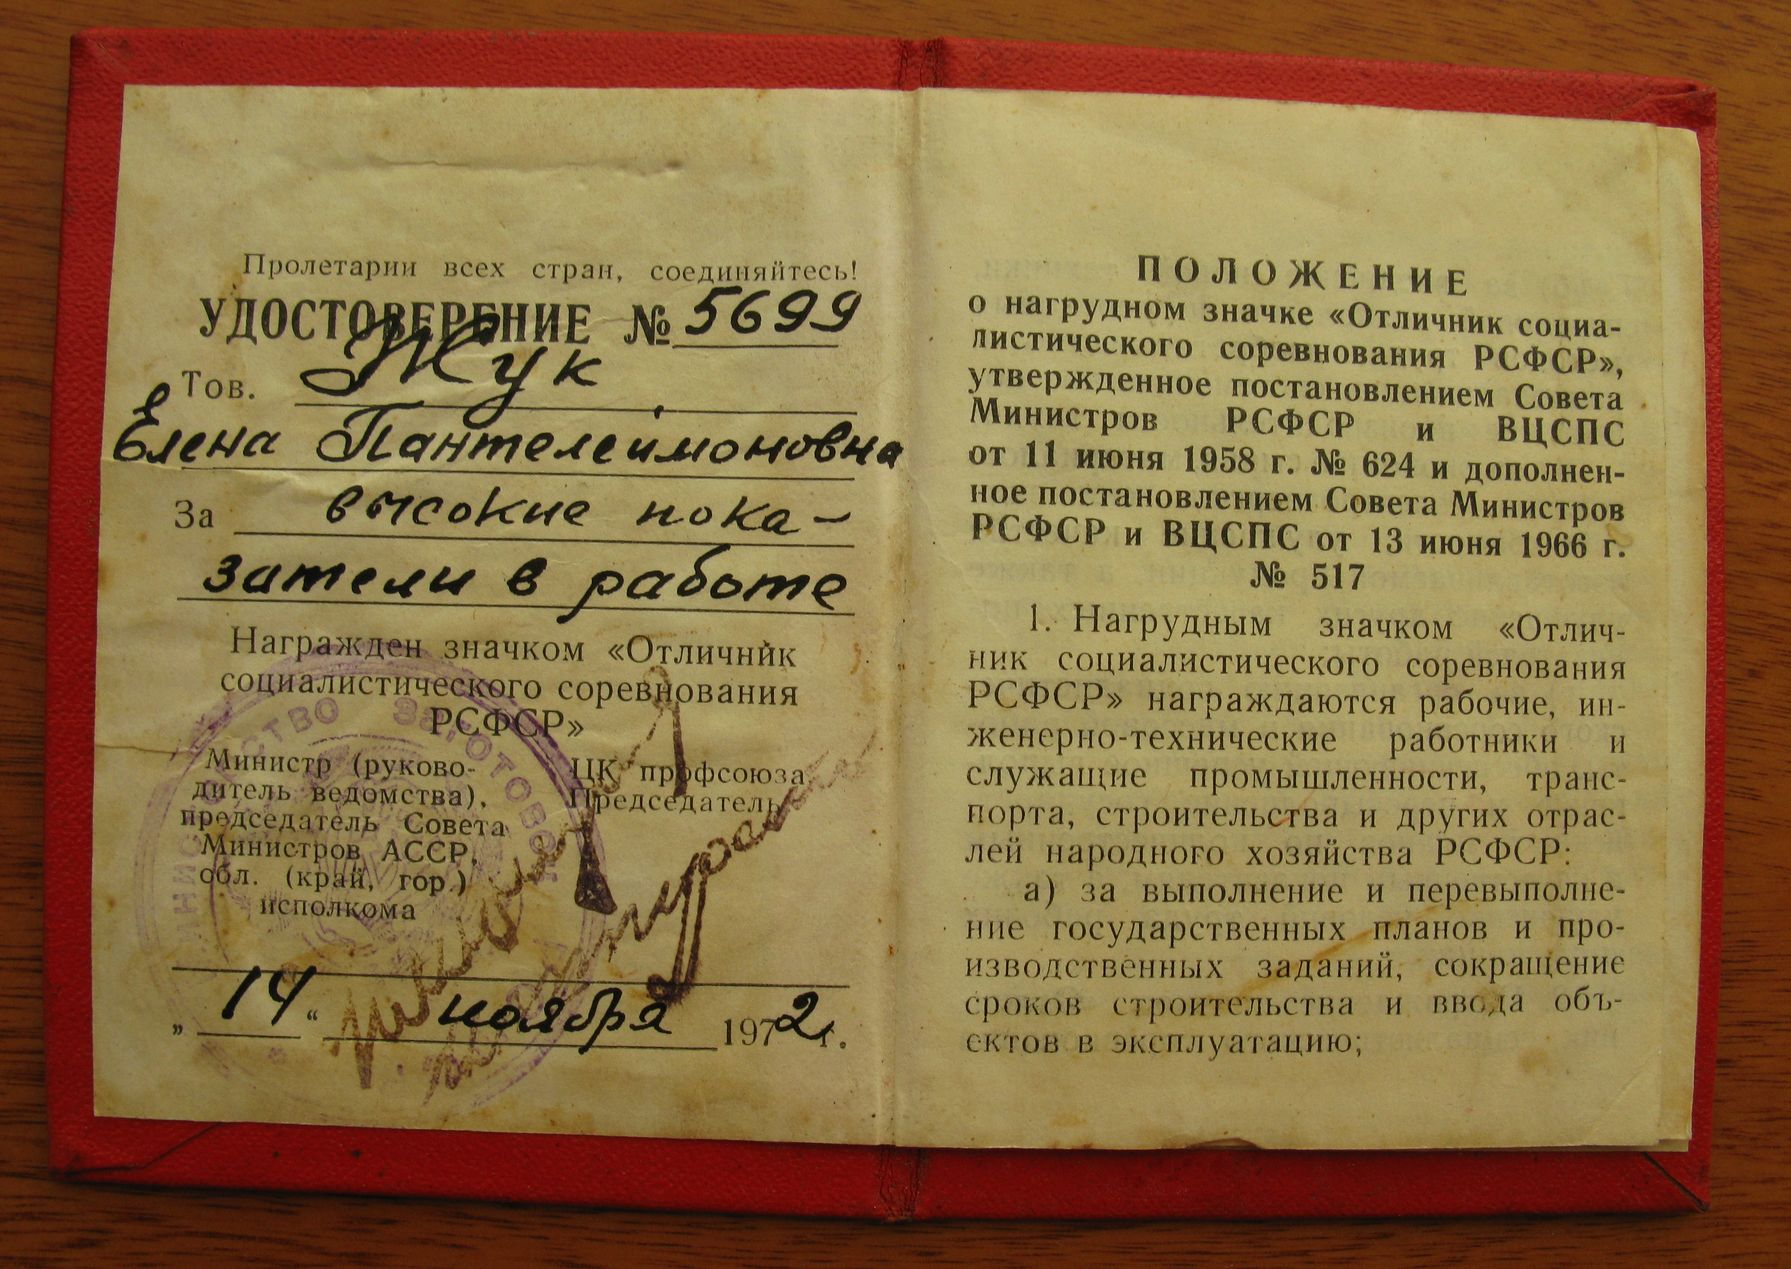 Пролетарии всех стран, соединяйтесь!
УДОСТОВЕРЕНИЕ № 5699
Тов. Жук
Елена Пантелеимоновна
За высокие пока-
затели в работе
Награжден значком «Отличник
социалистического соревнования
РСФСР»
Министр (руково-
дитель ведомства),
председатель Совета
Министров АССР,
обл. (край, гор.)
исполкома
ЦК профсоюза
Председатель
„ 14 “ ноября 1972 г.
ПОЛОЖЕНИЕ
о нагрудном значке «Отличник социа-
листического соревнования РСФСР»,
утвержденное постановлением Совета
Министров РСФСР и ВЦСПС
от 11 июня 1958 г. № 624 и дополнен-
ное постановлением Совета Министров
РСФСР и ВЦСПС от 13 июня 1966 г.
№ 517
1. Нагрудным значком «Отлич-
ник социалистического соревнования
РСФСР» награждаются рабочие, ин-
женерно-технические работники и
служащие промышленности, транс-
порта, строительства и других отрас-
лей народного хозяйства РСФСР:
а) за выполнение и перевыполне-
ние государственных планов и про-
изводственных заданий, сокращение
сроков строительства и ввода объ-
ектов в эксплуатацию;